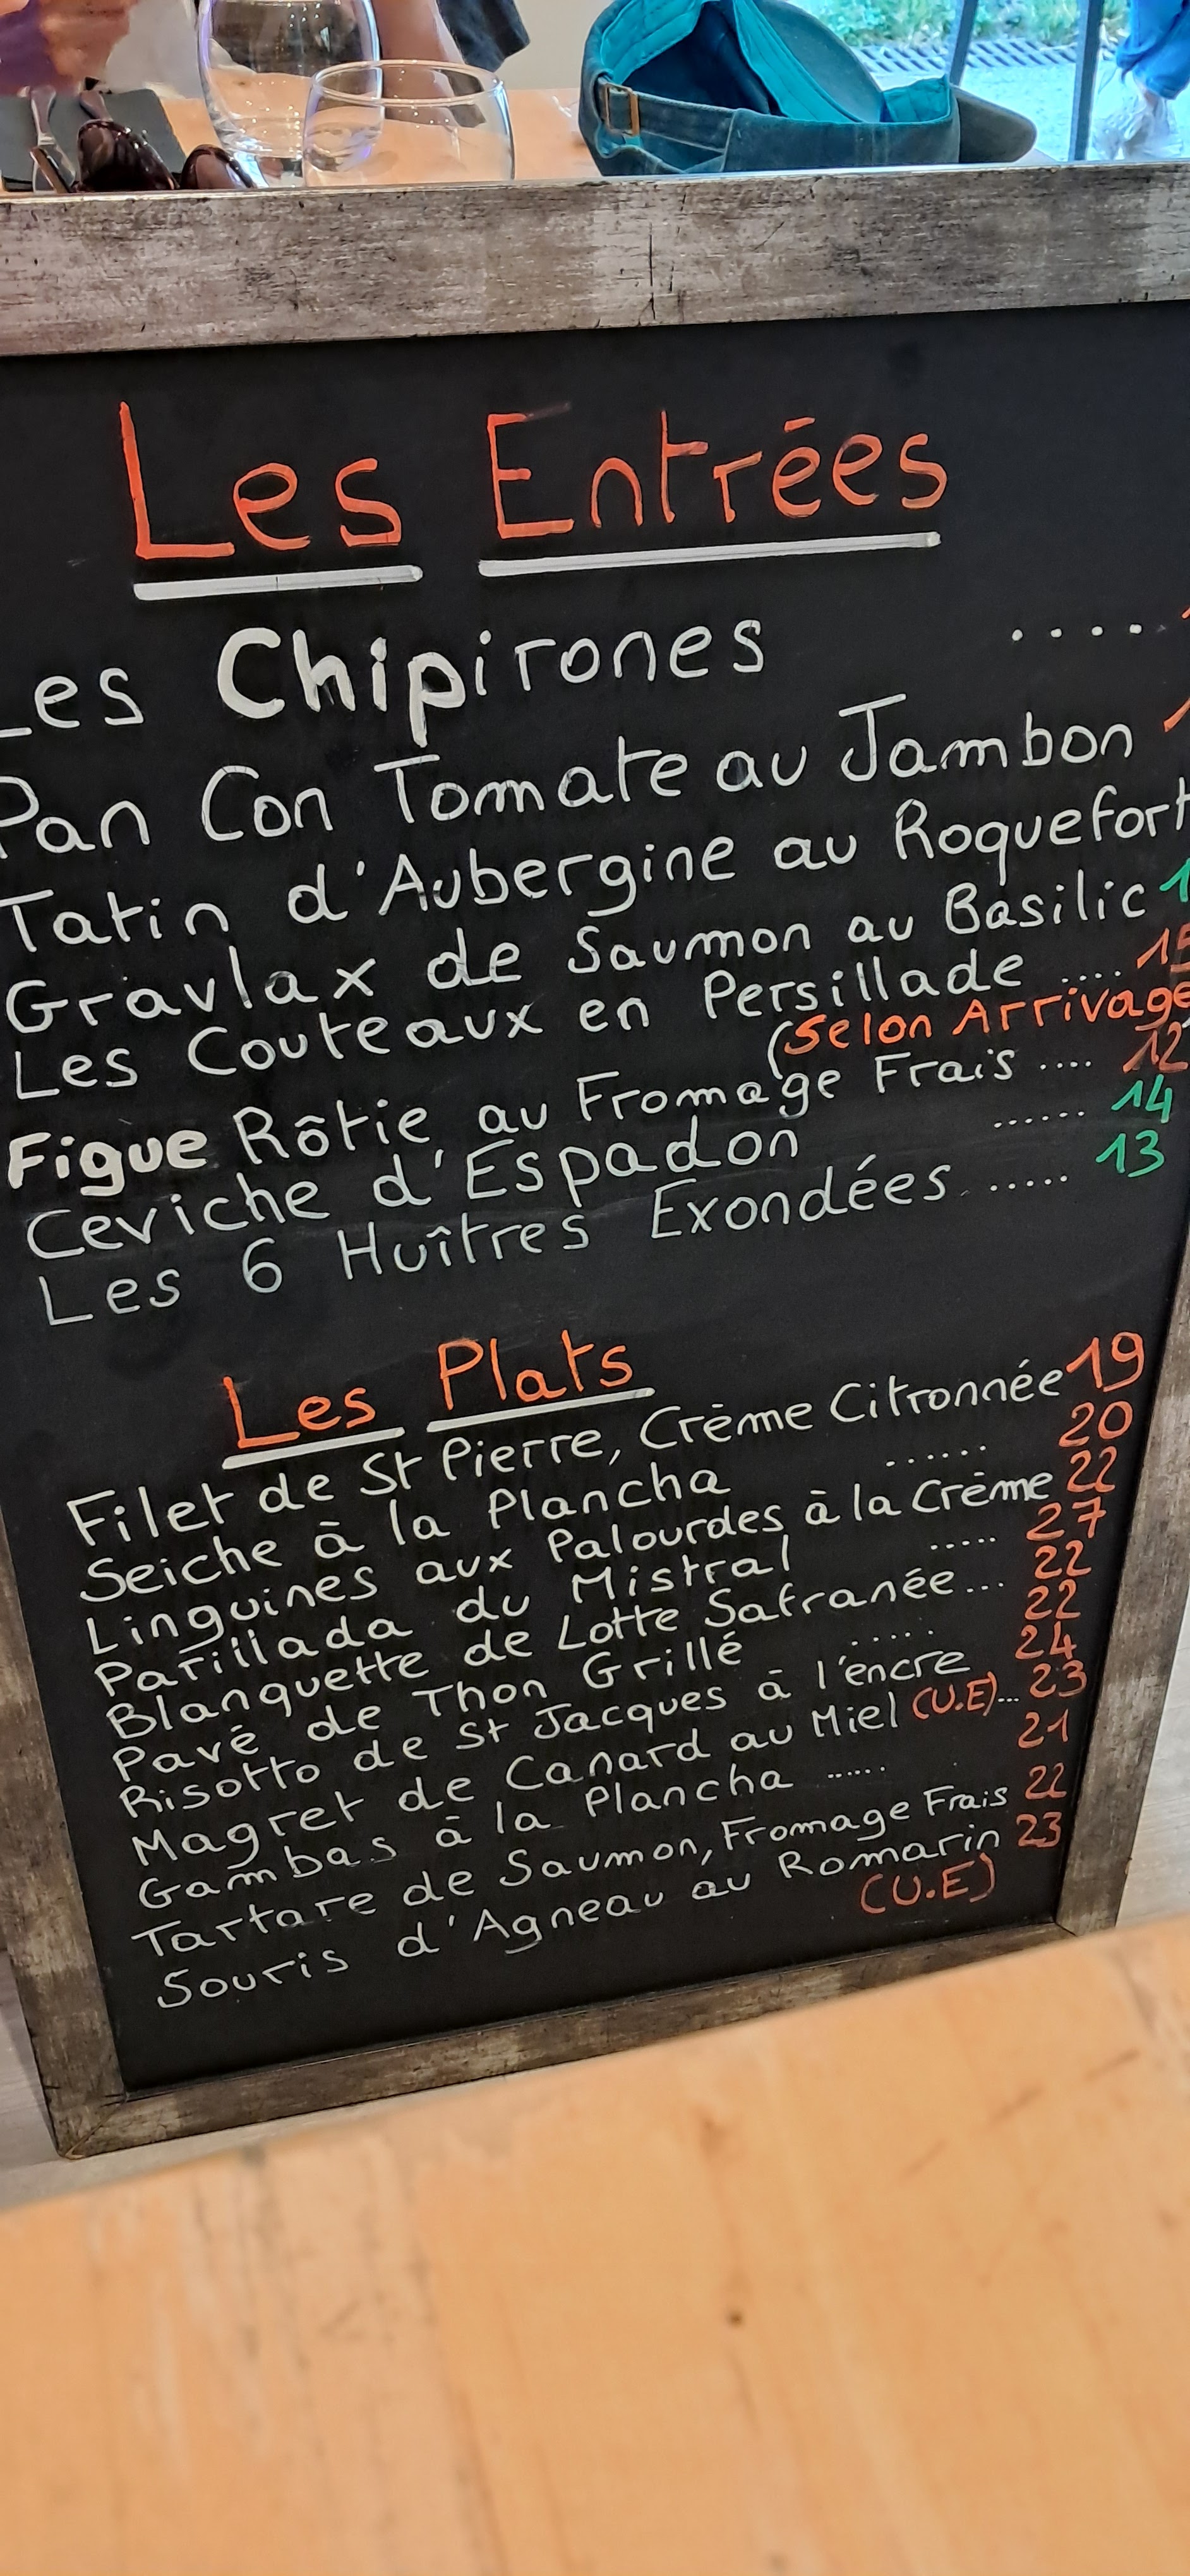 Les Entrées
Les Chipirones ....
Pan Con Tomate au Jambon
Tatin d'Aubergine au Roquefort
Gravlax de Saumon au Basilic
Les Couteaux en Persillade .... 15
(Selon Arrivage)
Figue Rôtie au Fromage Frais .... 12
Ceviche d'Espadon ...... 14
Les 6 Huîtres Exondées ..... 13
Les Plats
Filet de St Pierre, Crème Citronnée 19
Seiche à la Plancha ...... 20
Linguines aux Palourdes à la Crème 22
Parillada du Mistral ..... 27
Blanquette de Lotte Safranée... 22
Pavé de Thon Grillé ..... 22
Risotto de St Jacques à l'encre 24
Magret de Canard au Miel (U.E)... 23
Gambas à la Plancha ...... 21
Tartare de Saumon, Fromage Frais 22
Souris d'Agneau au Romarin 23
(U.E)